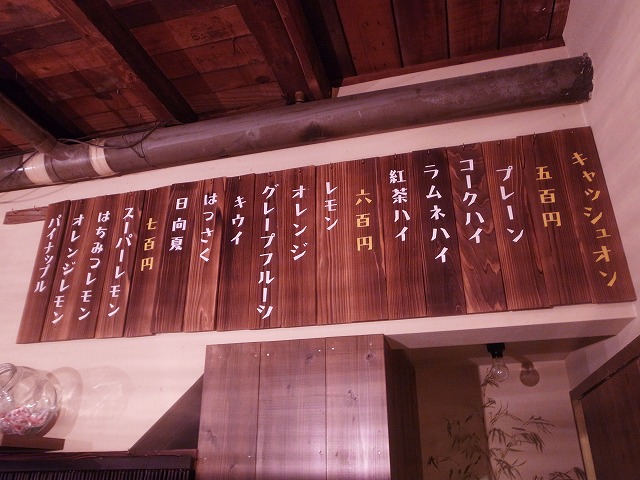 キャッシュオン
五百円
プレーン
コークハイ
ラムネハイ
紅茶ハイ
六百円
レモン
オレンジ
グレープフルーツ
キウイ
はっさく
日向夏
七百円
スーパーレモン
はちみつレモン
オレンジレモン
パイナップル